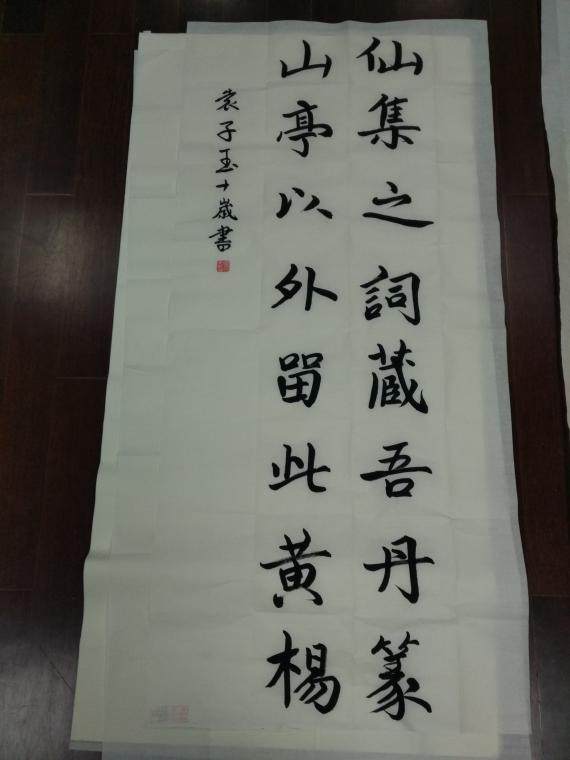 仙集之詞蔵吾丹篆
山亭以外留此黄楊
袁子玉十歲書